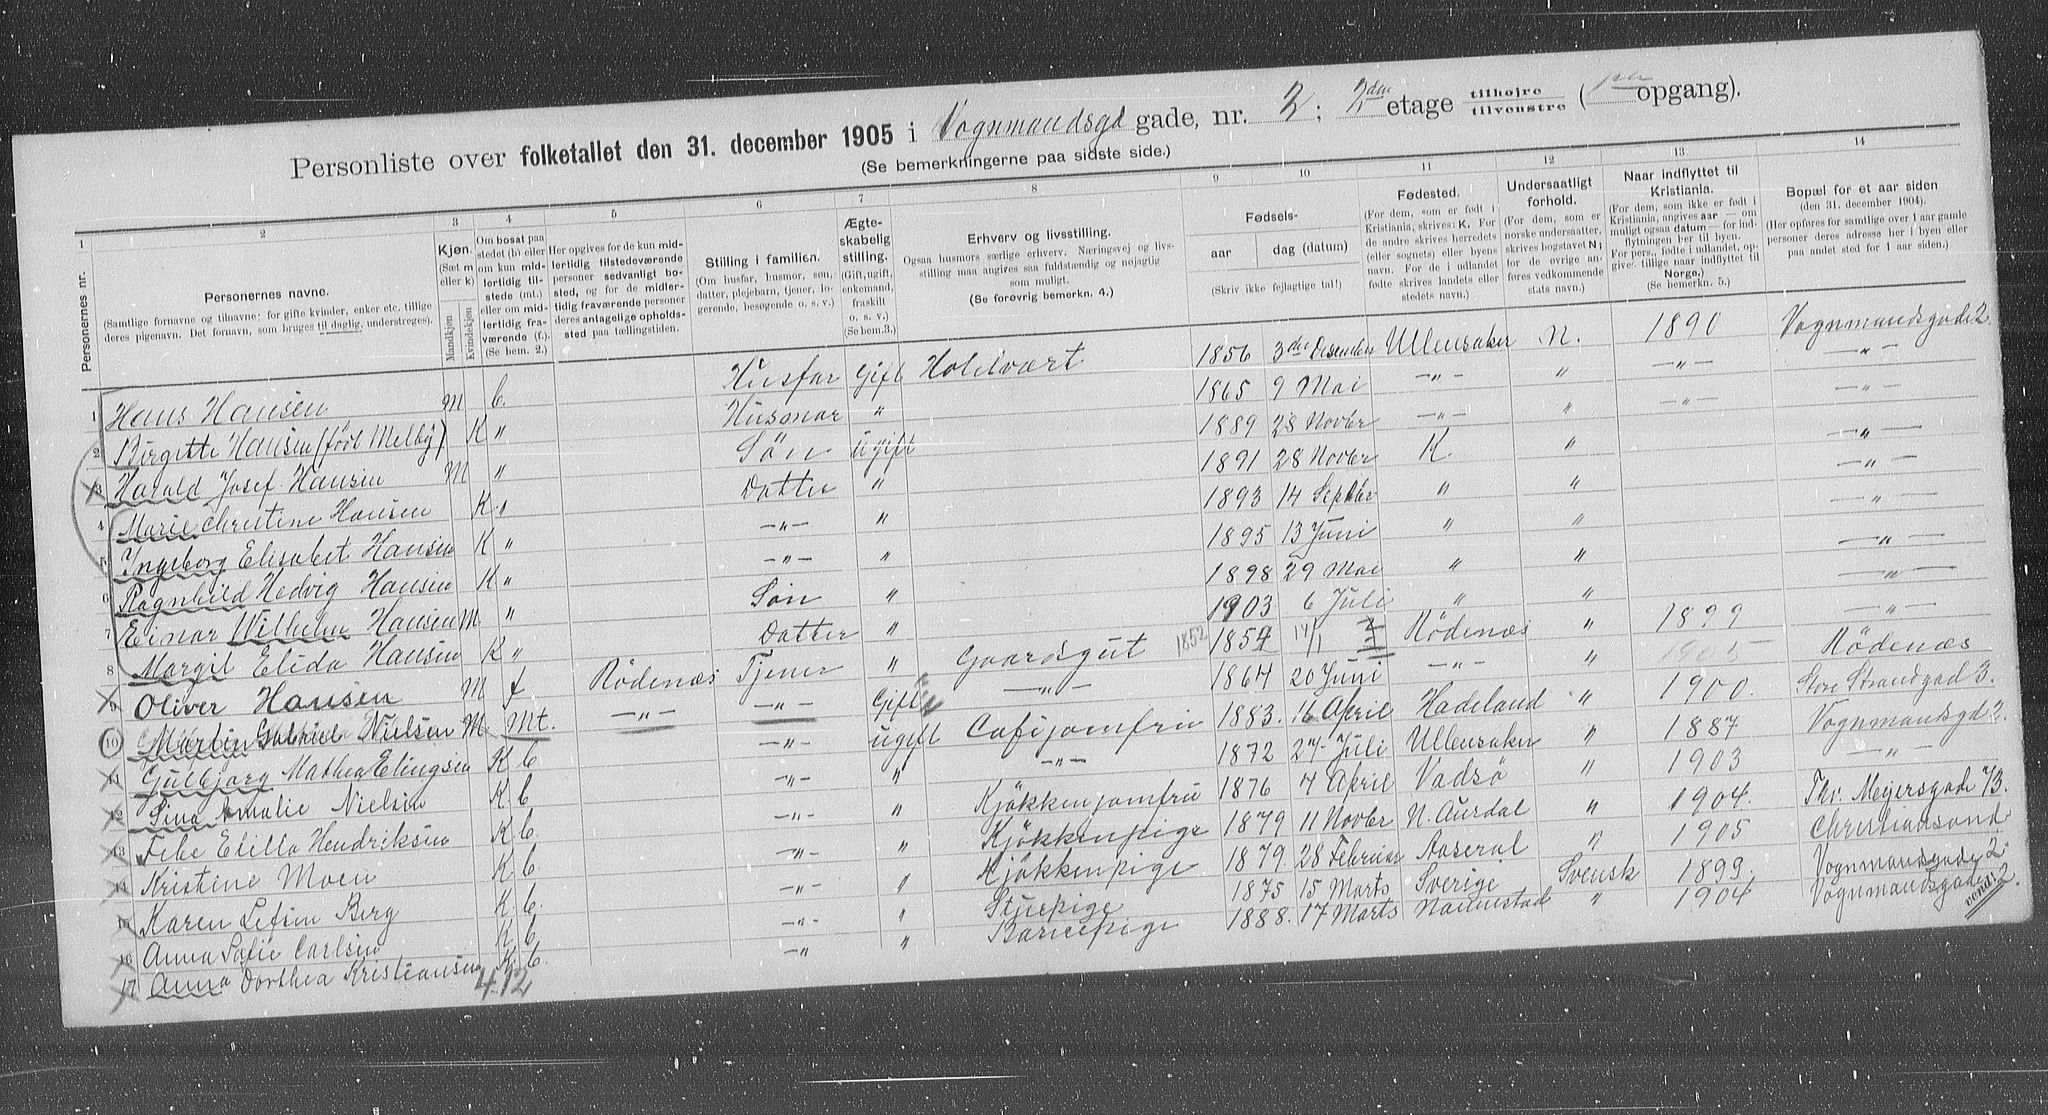 Personliste over folketallet den 31. december 1905 i Vognmandsgd gade, nr. 2; 2den etage tilhøjre / tilvenstre ( opgang).
(Se bemerkningerne paa sidste side.)
1 2 3 4 5 6 7 8 9 10 11 12 13 14
Personernes nr.
Personernes navne.
(Samtlige fornavne og tilnavne; for gifte kvinder, enker etc. tillige
deres pigenavn. Det fornavn, som bruges til daglig, understreges).
Kjøn.
(Sæt m
eller k)
Mandkjøn
Kvindekjøn
Om bosat paa
stedet (b) eller
om kun mid-
lertidig til-
stede (mt.)
eller om mid-
lertidig fra-
værende (f.).
(Se bem. 2.)
Her opgives for de kun mid-
lertidig tilstedeværende
personer sedvanligt bo-
sted, og for de midler-
tidig fraværende personer
deres antagelige opholds-
sted paa tællingstiden.
Stilling i familien.
(Om husfar, husmor, søn,
datter, plejebarn, tjener, lo-
gerende, besøgende o. s. v.)
Ægte-
skabelig
stilling.
(Gift, ugift,
enkemand,
fraskilt
o. s. v.)
(Se bem. 3.)
Erhverv og livsstilling.
Ogsaa husmors særlige erhverv. Næringsvej og livs-
stilling maa angives saa fuldstændig og nøjagtig
som muligt.
(Se forøvrig bemerkn. 4.)
Fødsels-
aar dag (datum)
(Skriv ikke fejlagtige tal!)
Fødested.
(For dem, som er født i
Kristiania, skrives: K. For
de andre skrives herredets
(eller sognets) eller byens
navn. For de i udlandet
fødte skrives landets eller
stedets navn.)
Undersaatligt
forhold.
(For dem, som er
norske undersaatter,
skrives bogstavet N;
for de øvrige an-
føres vedkommende
stats navn.)
Naar indflyttet til
Kristiania.
(For dem, som ikke er født i
Kristiania, angives aar — om
muligt ogsaa datum — for ind-
flytningen her til byen.
For pers., fødte i udlandet, op-
gives tillige naar indflyttet til
Norge.)
(Se bemerkn. 5.)
Bopæl for et aar siden
(den 31. december 1904).
(Her opføres for samtlige over 1 aar gamle
personer deres adresse her i byen eller
paa andet sted for 1 aar siden.)
1 Hans Hansen M b. Husfar Gift Hotelvært 1856 3die Desember Ullensaker N. 1890 Vognmandsgade 2.
2 Birgitte Hansen (født Melby) K " Husmor " 1865 9 Mai -"- " -"- -"-
3 Harald Josef Hansen M " Søn ugift 1889 28 Novbr -"- " -"- -"-
4 Marie Christine Hansen K " Datter " 1891 28 Novbr K. " -"-
5 Ingeborg Elisabet Hansen K " -"- " 1893 14 Septbr " " -"-
6 Ragnhild Hedvig Hansen K " -"- " 1895 13 Juni " " -"-
7 Einar Wilhelm Hansen M " Søn " 1898 29 Mai " " -"-
8 Margit Elida Hansen K " Datter " 1903 6 Juli " " -"-
9 Oliver Hansen M f Rødenæs Tjener " Gaardsgut 1852 1854 14/1 Rødenæs " 1899 -"-
10 Martin Gabriel Nielsen M Mt. -"- -"- Gift -"- 1864 20 Juni -"- " 1905 Rødenæs
11 Gulbjorg Mathea Elingsen K b -"- ugift Cafejomfru 1883. 16 April Hadeland " 1900. Store Strandgad 3.
12 Sina Amalie Nielsen K b -"- " -"- 1872 27 Juli Ullensaker " 1887 Vognmandsgd 2.
13 Febe Elilla Hendriksen K b. -"- " Kjøkkenjomfru 1876 7 April Vadsø " 1903 -"-
14 Kristine Moen K b. -"- " Kjøkkenpige 1879 11 Novbr N. Aurdal " 1904. Thv. Meyersgade 73.
15 Karen Lefsen Berg K b. -"- " Kjøkkenpige 1879. 28 Februar Aaseral " 1905 Christiansand
16 Anna Sofie Carlsen K b. -"- " Stuepige 1875 15 Marts Sverige Svensk 1899. Vognmandsgade 2.
17 Anna Dorthea Kristiansen K b. -"- " Barnepige 1888. 17 Marts Naumstad " 1904 Vognmandsgade 2.
vend!
4-12